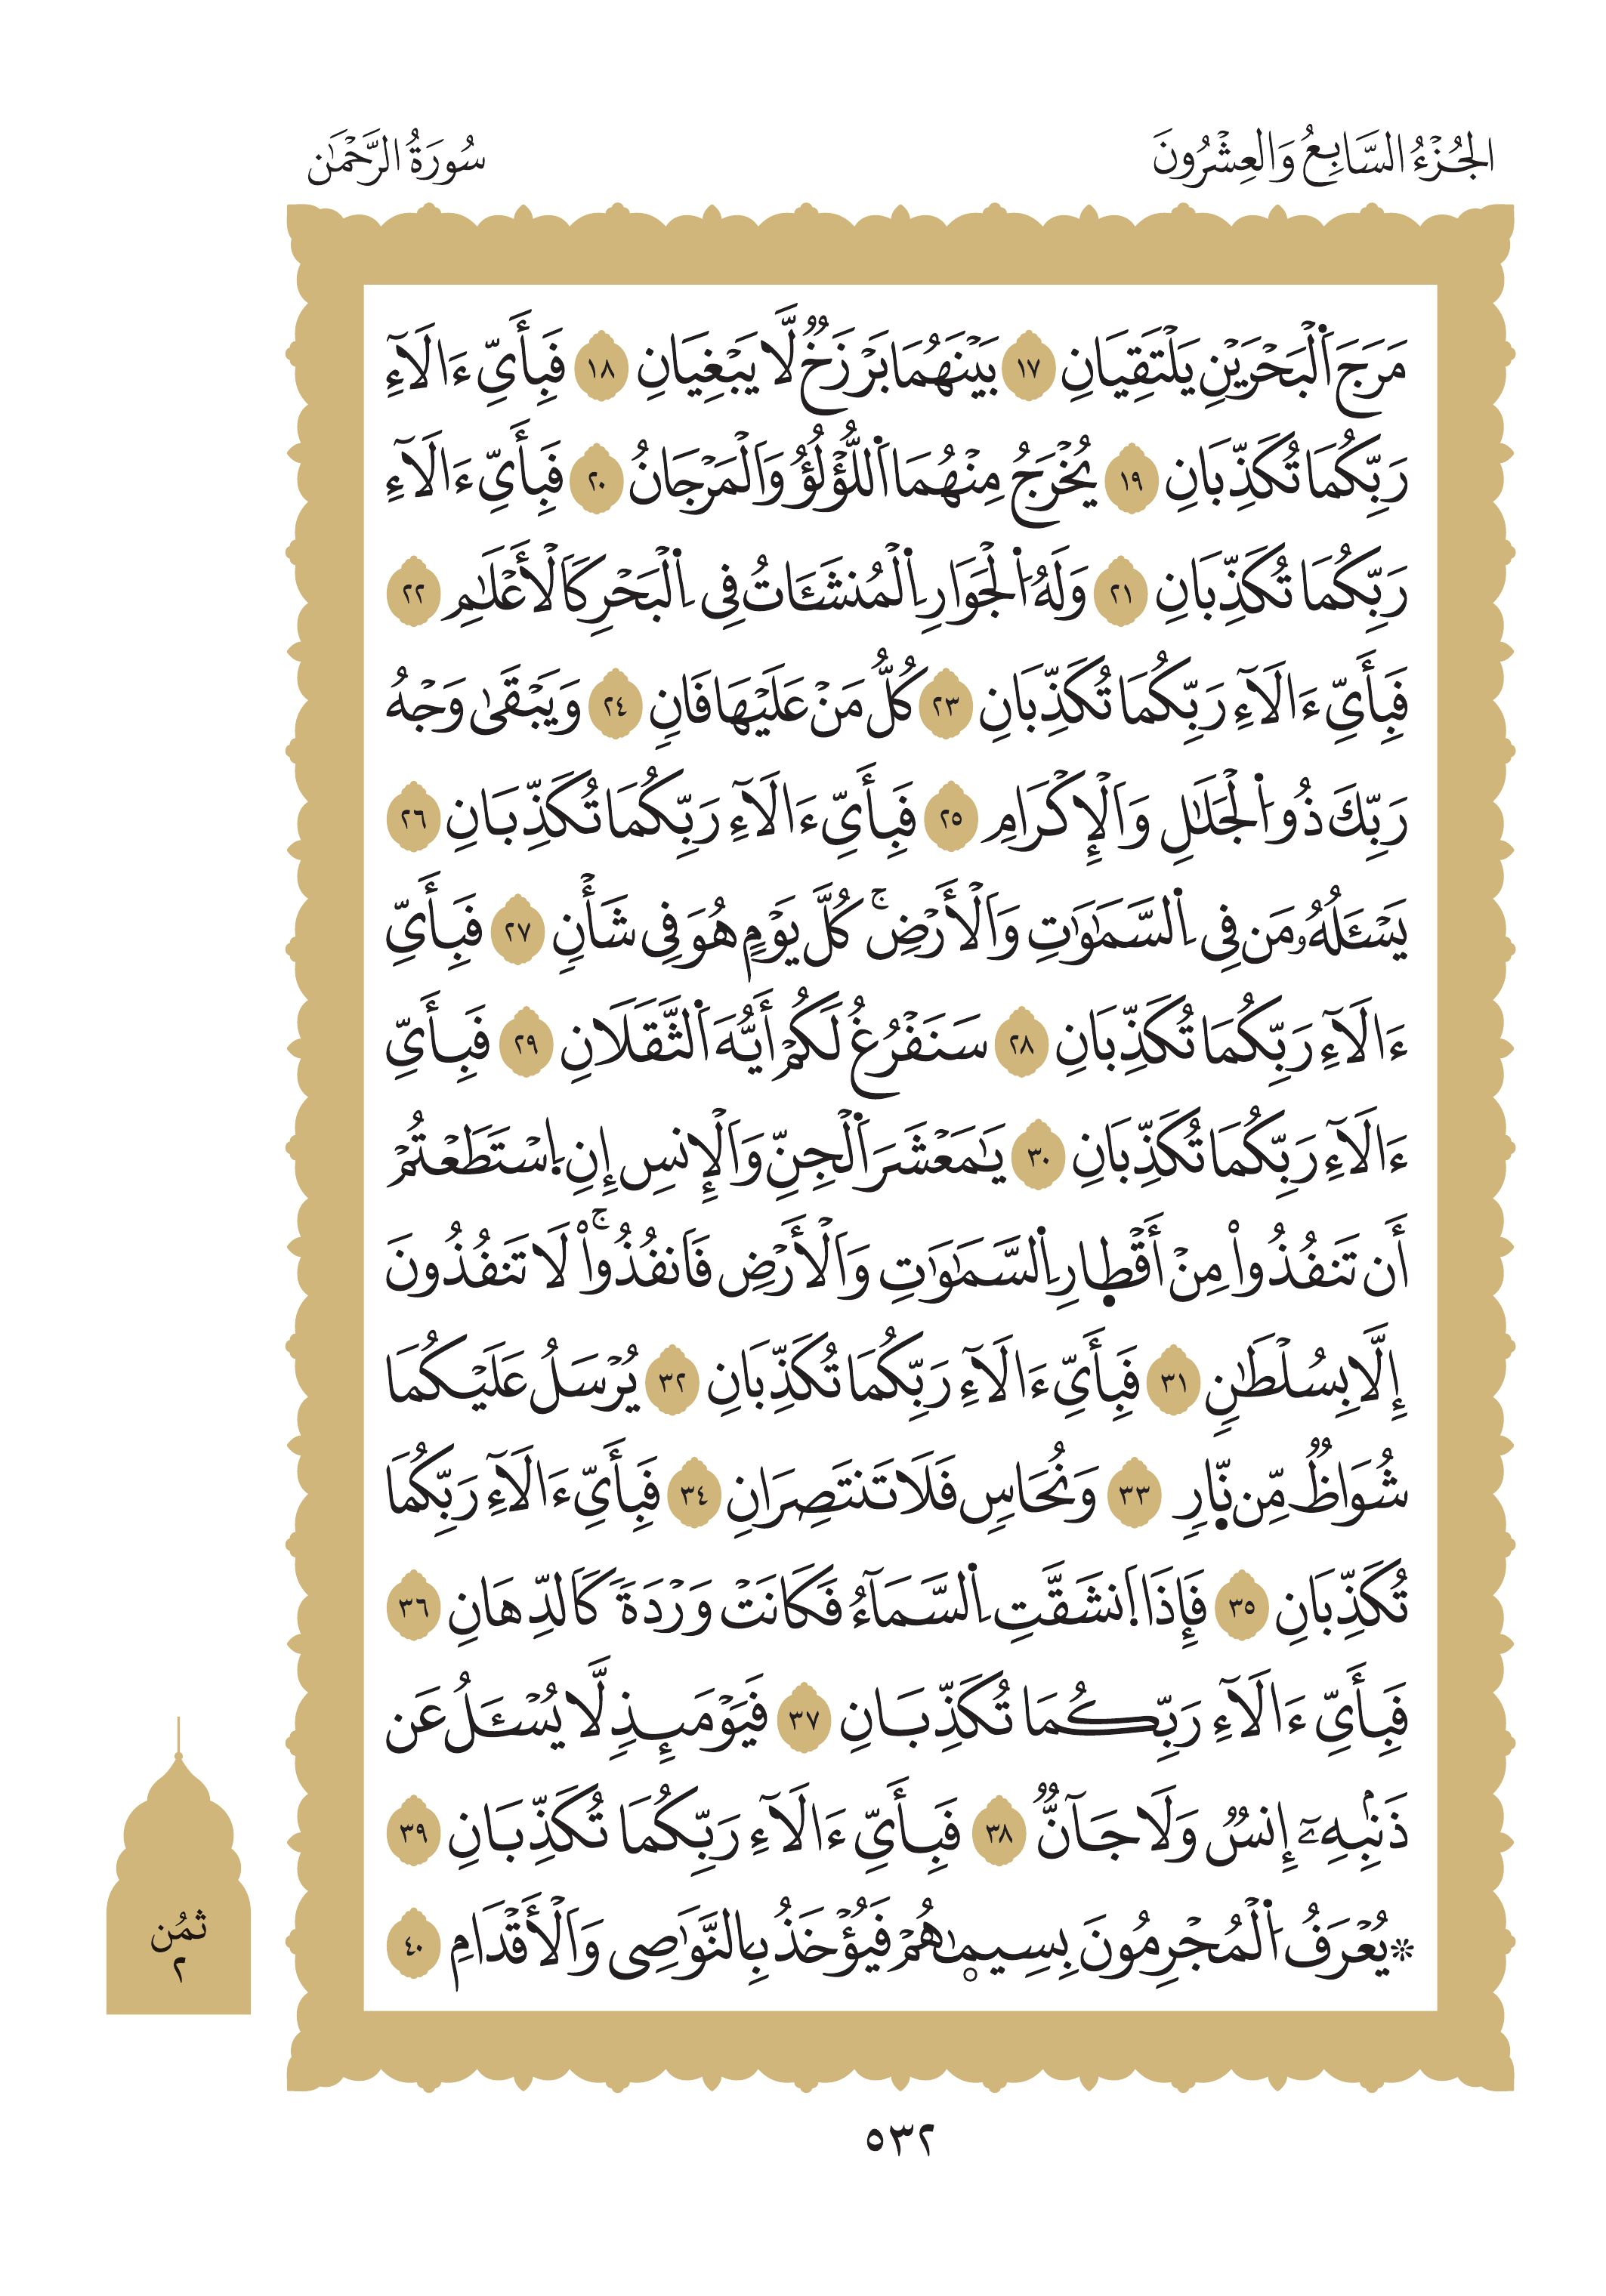 الجُزْءُ السَّابِعُ وَالعِشْرُونَ
سُورَةُ الرَّحْمَٰن
مَرَجَ اَ۬لْبَحْرَيْنِ يَلْتَقِيَانِ ١٧ بَيْنَهُمَا بَرْزَخٞ لَّا يَبْغِيَانِ ١٨ فَبِأَيِّ ءَالَآءِ
رَبِّكُمَا تُكَذِّبَانِ ١٩ يُخْرَجُ مِنْهُمَا اَ۬للُّؤْلُؤُ وَالْمَرْجَانُ ٢٠ فَبِأَيِّ ءَالَآءِ
رَبِّكُمَا تُكَذِّبَانِ ٢١ وَلَهُ اُ۬لْجَوَارِ اِ۬لْمُنشَـَٔاتُ فِي اِ۬لْبَحْرِ كَالْأَعْلَٰمِ ٢٢
فَبِأَيِّ ءَالَآءِ رَبِّكُمَا تُكَذِّبَانِ ٢٣ كُلُّ مَنْ عَلَيْهَا فَانٖ ٢٤ وَيَبْقَىٰ وَجْهُ
رَبِّكَ ذُو اُ۬لْجَلَٰلِ وَالْإِكْرَامِ ٢٥ فَبِأَيِّ ءَالَآءِ رَبِّكُمَا تُكَذِّبَانِ ٢٦
يَسْـَٔلُهُۥ مَن فِي اِ۬لسَّمَٰوَٰتِ وَالْأَرْضِۚ كُلَّ يَوْمٍ هُوَ فِي شَأْنٖ ٢٧ فَبِأَيِّ
ءَالَآءِ رَبِّكُمَا تُكَذِّبَانِ ٢٨ سَنَفْرُغُ لَكُمْ أَيُّهَ اَ۬لثَّقَلَانِ ٢٩ فَبِأَيِّ
ءَالَآءِ رَبِّكُمَا تُكَذِّبَانِ ٣٠ يَٰمَعْشَرَ اَ۬لْجِنِّ وَالْإِنسِ إِنِ اِ۪سْتَطَعْتُمْ
أَن تَنفُذُواْ مِنْ أَقْطِ۪ارِ اِ۬لسَّمَٰوَٰتِ وَالْأَرْضِ فَانفُذُواْۚ لَا تَنفُذُونَ
إِلَّا بِسُلْطَٰنٖ ٣١ فَبِأَيِّ ءَالَآءِ رَبِّكُمَا تُكَذِّبَانِ ٣٢ يُرْسَلُ عَلَيْكُمَا
شُوَاظٞ مِّن نّ۪ارٖ ٣٣ وَنُحَاسٖ فَلَا تَنتَصِرَانِ ٣٤ فَبِأَيِّ ءَالَآءِ رَبِّكُمَا
تُكَذِّبَانِ ٣٥ فَإِذَا اَ۪نشَقَّتِ اِ۬لسَّمَآءُ فَكَانَتْ وَرْدَةٗ كَالدِّهَانِ ٣٦
فَبِأَيِّ ءَالَآءِ رَبِّكُمَا تُكَذِّبَانِ ٣٧ فَيَوْمَئِذٖ لَّا يُسْـَٔلُ عَن
ذَنۢبِهِۦٓ إِنسٞ وَلَا جَآنّٞ ٣٨ فَبِأَيِّ ءَالَآءِ رَبِّكُمَا تُكَذِّبَانِ ٣٩
۞يُعْرَفُ اُ۬لْمُجْرِمُونَ بِسِيمٰ۪هُمْ فَيُؤْخَذُ بِالنَّوَٰصِي وَالْأَقْدَامِ ٤٠
ثمُن
٢
٥٣٢